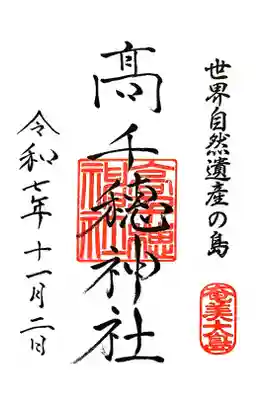 世界自然遺産の島
奄美大島
髙千穂神社
高千穂神社
令和七年十一月二日